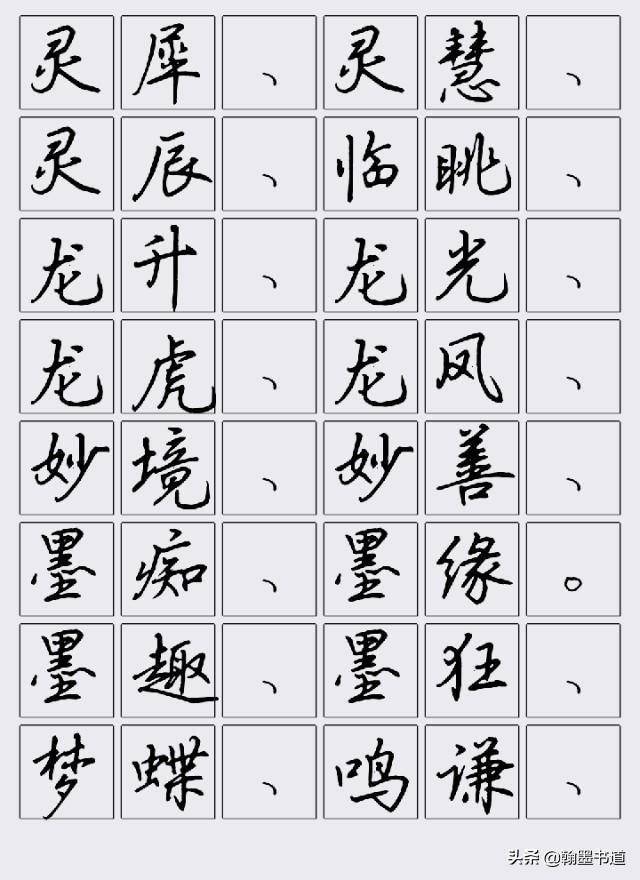 灵犀、灵慧、
灵辰、临眺、
龙升、龙光、
龙虎、龙凤、
妙境、妙善、
墨痴、墨缘。
墨趣、墨狂、
梦蝶、鸣谦、
头条 @翰墨书道